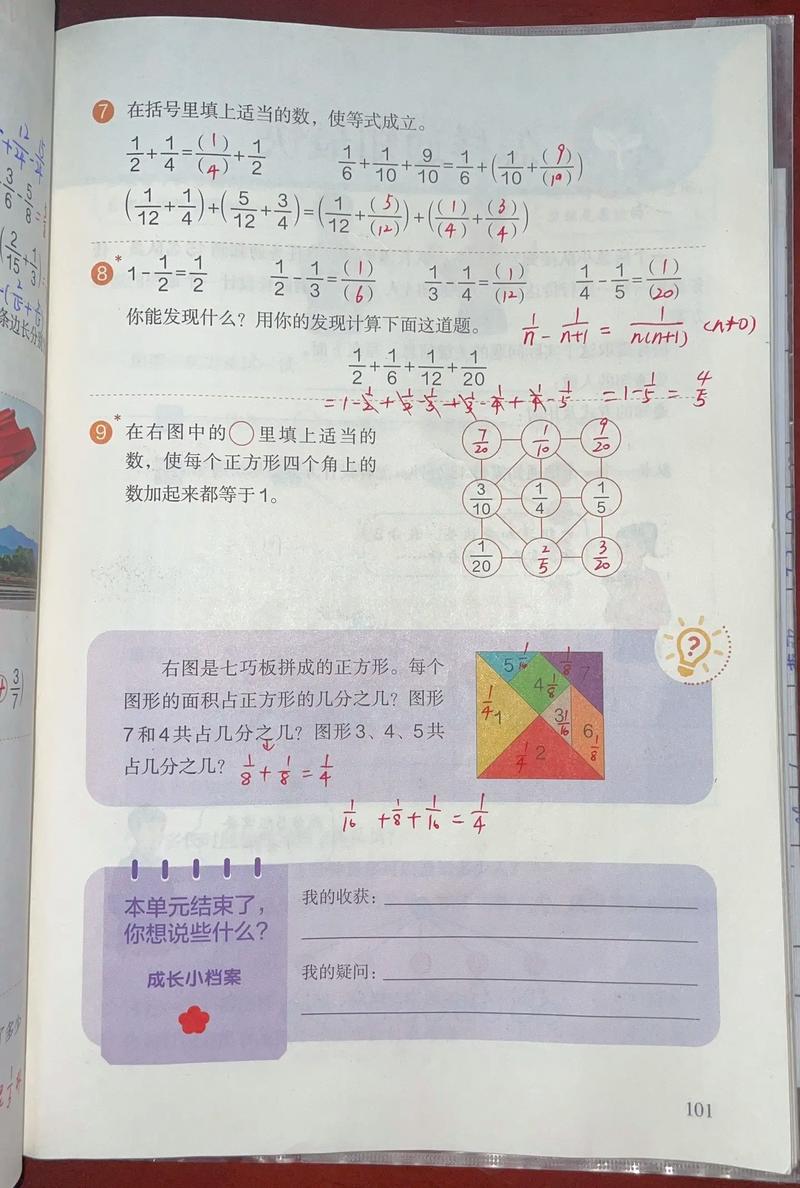 7 在括号里填上适当的数，使等式成立。
1/2+1/4=(1)/(4)+1/2 1/6+1/10+9/10=1/6+(1/10+(9)/(10))
(1/12+1/4)+(5/12+3/4)=(1/12+(5)/(12))+((1)/(4)+(3)/(4))
8* 1-1/2=1/2 1/2-1/3=(1)/(6) 1/3-1/4=(1)/(12) 1/4-1/5=(1)/(20)
你能发现什么？用你的发现计算下面这道题。 1/n-1/(n+1)=1/(n(n+1)) (n≠0)
1/2+1/6+1/12+1/20
=1-1/2+1/2-1/3+1/3-1/4+1/4-1/5=1-1/5=4/5
9* 在右图中的○里填上适当的
数，使每个正方形四个角上的
数加起来都等于1。
7/20 1/10 9/20
3/10 1/4 1/5
1/20 2/5 3/20
?
右图是七巧板拼成的正方形。每个
图形的面积占正方形的几分之几？图形
7和4共占几分之几？图形3、4、5共
占几分之几？ 1/8+1/8=1/4
5 1/16 1/8 7
4 1/8
1/4 1 3 1/16
1/4 2 6 1/8
1/16+1/8+1/16=1/4
本单元结束了，
你想说些什么？
成长小档案
我的收获：
我的疑问：
101